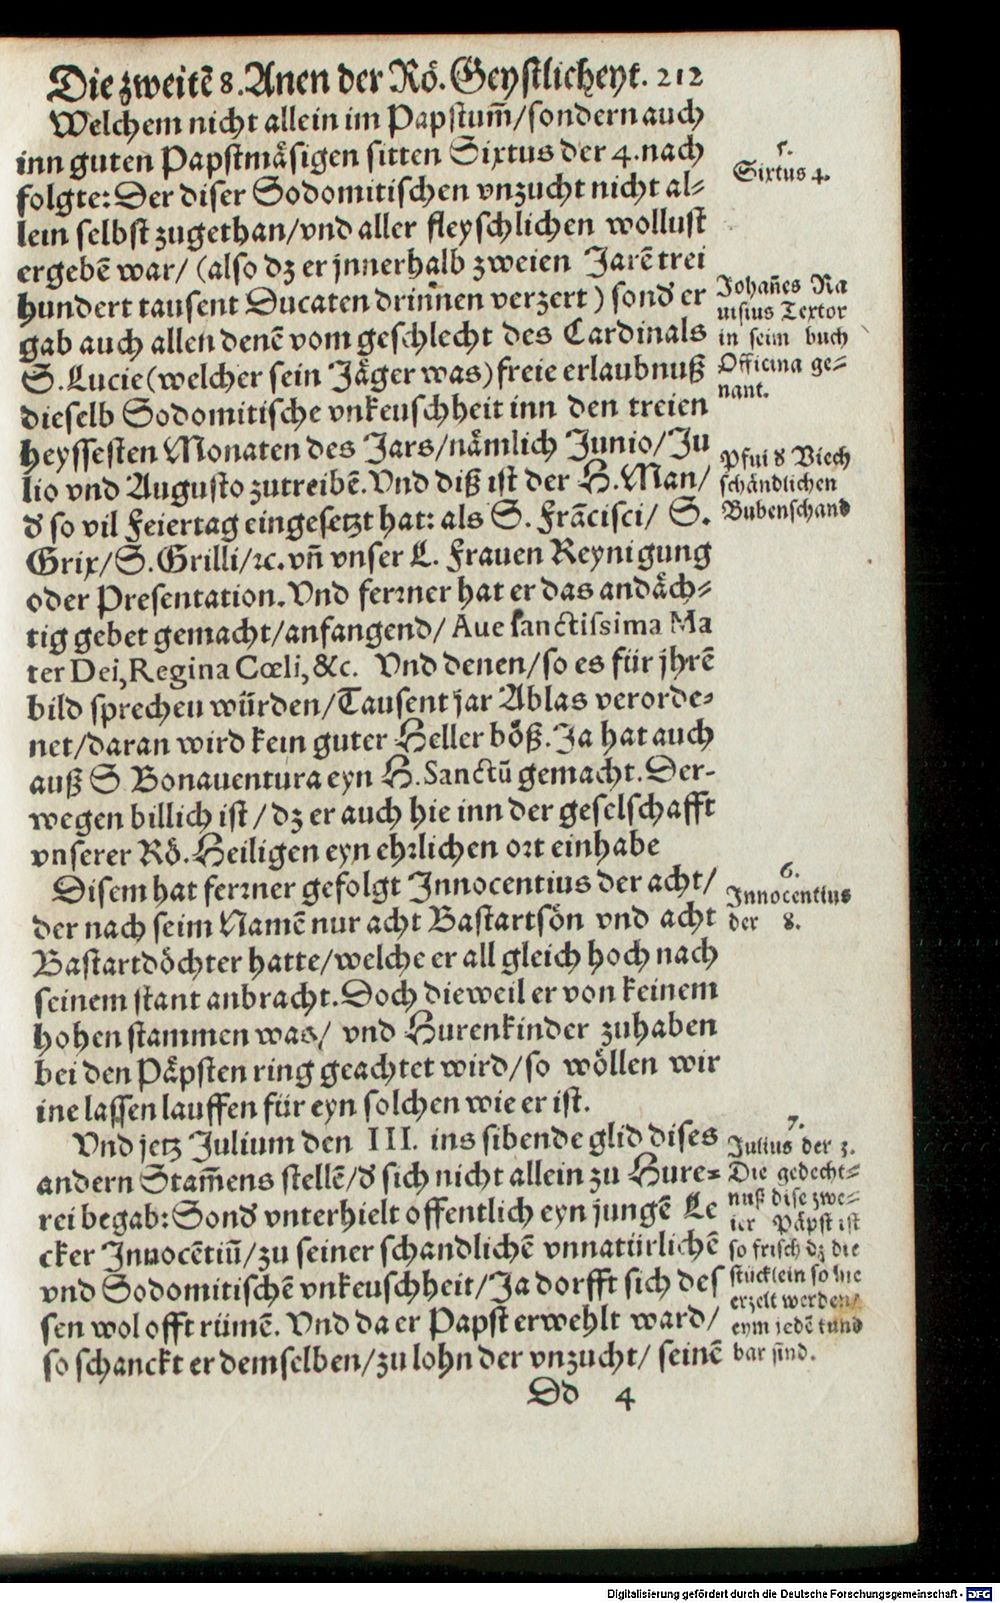 Die zweitẽ 8. Anen der Rö. Geystlicheyt. 212
Welchem nicht allein im Papstum̃/sondern auch
inn guten Papstmäsigen sitten Sixtus der 4. nach
folgte: Der diser Sodomitischen vnzucht nicht al-
lein selbst zugethan/vnd aller fleyschlichen wollust
ergebẽ war/ (also dz er jnnerhalb zweien Jarẽ trei
hundert tausent Ducaten drinnen verzert) sond̕ er
gab auch allen denẽ vom geschlecht des Cardinals
S. Lucie (welcher sein Jäger was) freie erlaubnuß
dieselb Sodomitische vnkeuschheit inn den treien
heyssesten Monaten des Jars/nämlich Junio/Ju
lio vnd Augusto zutreibẽ. Vnd diß ist der H. Man/
d̕ so vil Feiertag eingesetzt hat: als S. Frãcisci/ S.
Grix/S. Grilli/ꝛc. vñ vnser L. Frauen Reynigung
oder Presentation. Vnd ferrner hat er das andäch-
tig gebet gemacht/anfangend/ Aue sanctissima Ma
ter Dei, Regina Cœli, &c. Vnd denen/so es für jhrẽ
bild sprechen würden/Tausent jar Ablas verorde-
net/daran wird kein guter Heller böß. Ja hat auch
auß S Bonauentura eyn H. Sanctũ gemacht. Der-
wegen billich ist/dz er auch hie inn der geselschafft
vnserer Rö. Heiligen eyn ehrlichen ort einhabe
Disem hat ferrner gefolgt Innocentius der acht/
der nach seim Namẽ nur acht Bastartsön vnd acht
Bastartdöchter hatte/welche er all gleich hoch nach
seinem stant anbracht. Doch dieweil er von keinem
hohen stammen was/ vnd Hurenkinder zuhaben
bei den Päpsten ring geachtet wird/so wöllen wir
ine lassen lauffen für eyn solchen wie er ist.
Vnd jetz Julium den III. ins sibende glid dises
andern Stam̃ens stellẽ/d̕ sich nicht allein zu Hure-
rei begab: Sond̕ vnterhielt offentlich eyn jungẽ Le
cker Innocẽtiũ/zu seiner schandlichẽ vnnatürlichẽ
vnd Sodomitischẽ vnkeuschheit/Ja dorfft sich des
sen wol offt rümẽ. Vnd da er Papst erwehlt ward/
so schanckt er demselben/zu lohn der vnzucht/ seinẽ
Dd 4
5.
Sixtus 4.
Johañes Ra
uisius Textor
in seim buch
Officina ge-
nant.
Pfui d̕ Viech
schändlichen
Bubenschand
6.
Innocentius
der 8.
7.
Julius der 3.
Die gedecht-
nuß dise zwe-
ier Päpst ist
so frisch dz die
stücklein so hie
erzelt werden/
eym jedẽ kund
bar sind.
Digitalisierung gefördert durch die Deutsche Forschungsgemeinschaft - DFG